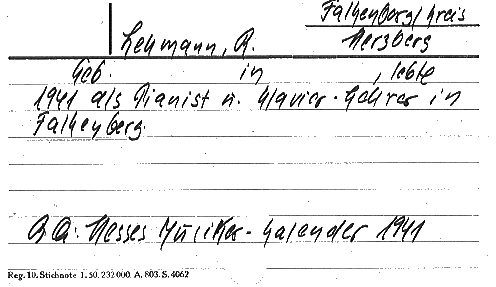 Falkenberg/Kreis
Herzberg
Lehmann, R.
Geb. in , lebte
1941 als Pianist u. Klavier-Lehrer in
Falkenberg.
Hesses Musiker-Kalender 1941
Reg. 10. Stichnote 1. 50. 232 000. A. 803. S. 4062